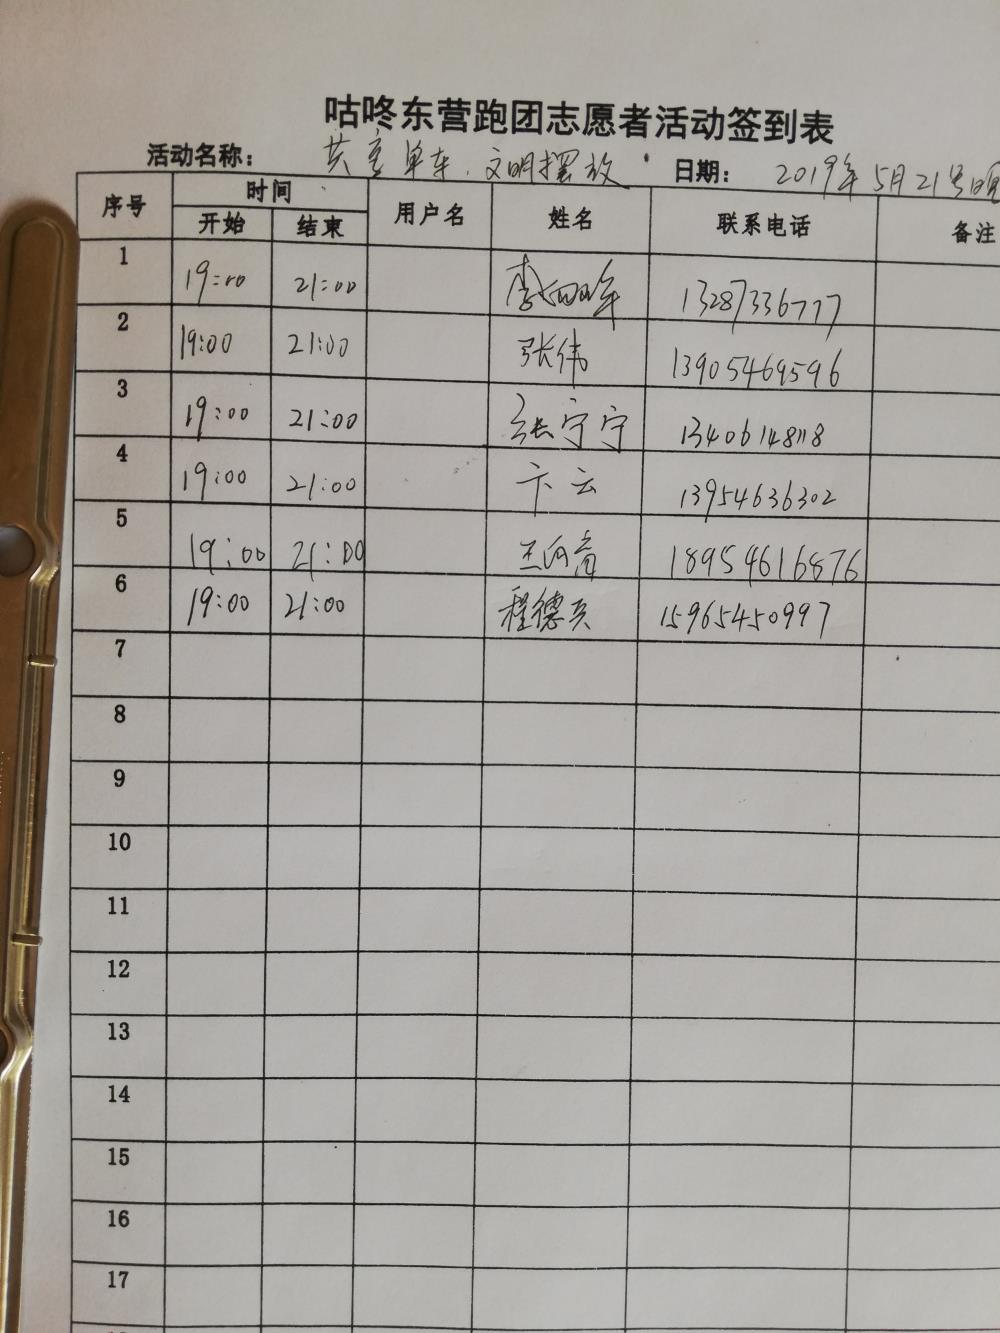 咕咚东营跑团志愿者活动签到表
活动名称: 共享单车、文明摆放 日期: 2019年5月21号
序号 时间 用户名 姓名 联系电话 备注
开始 结束
1 19:00 21:00 李 13287336777
2 19:00 21:00 张伟 13905469596
3 19:00 21:00 张宁宁 13406148118
4 19:00 21:00 卞云 13954636302
5 19:00 21:00 王 18954616876
6 19:00 21:00 程德 15965450997
7
8
9
10
11
12
13
14
15
16
17